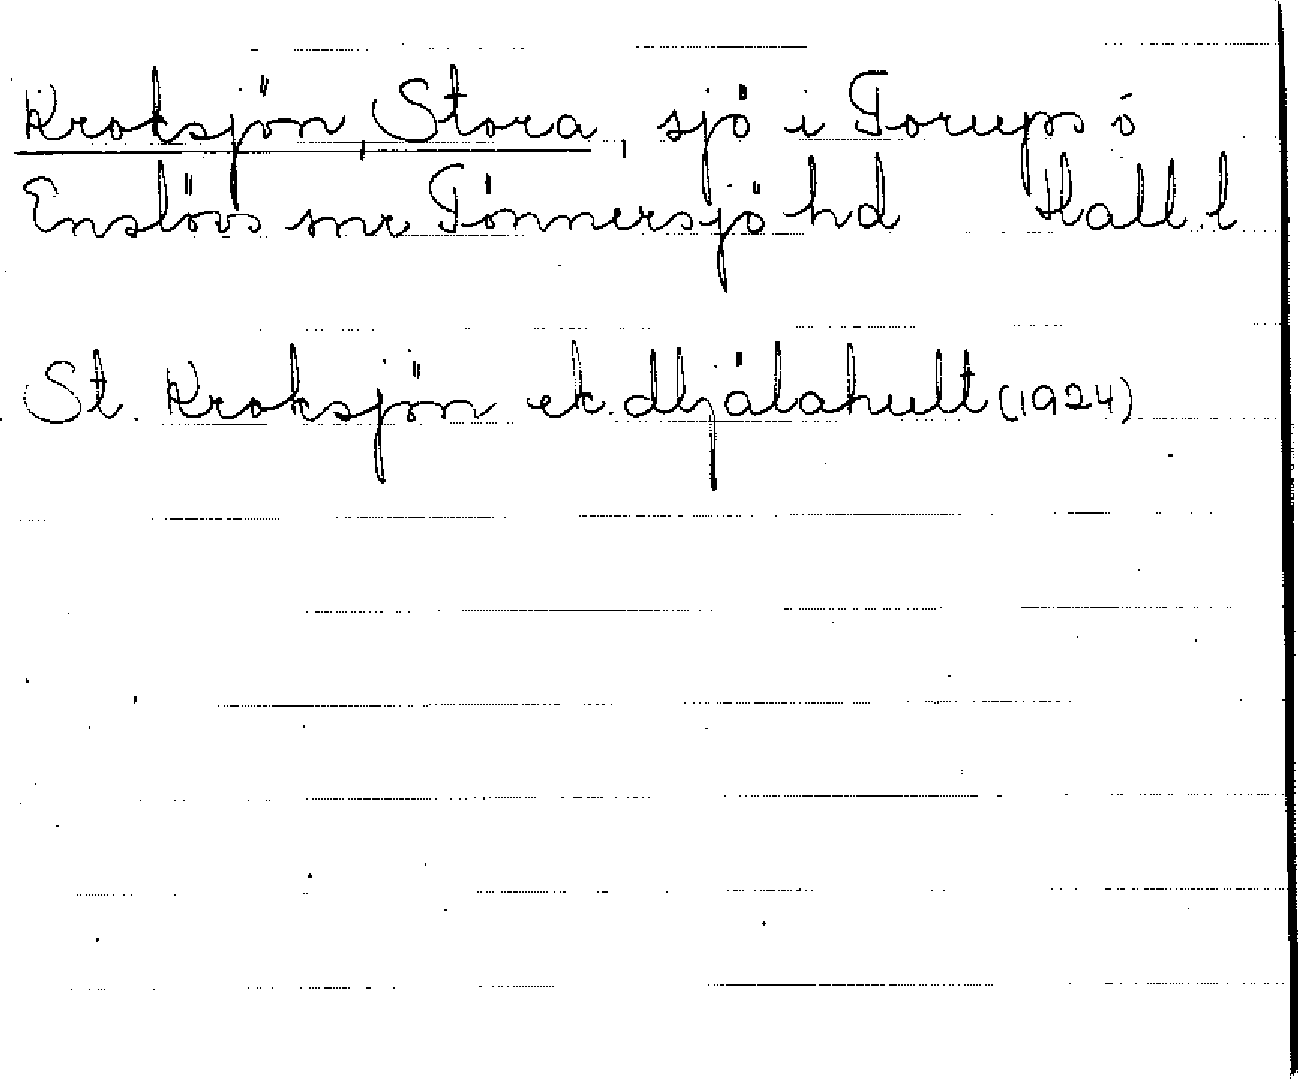 Kroksjön, Stora, sjö i Torups o
Enslövs snr Tönnersjö hd Hall. l
St. Kroksjön ek. Mjälahult (1924)